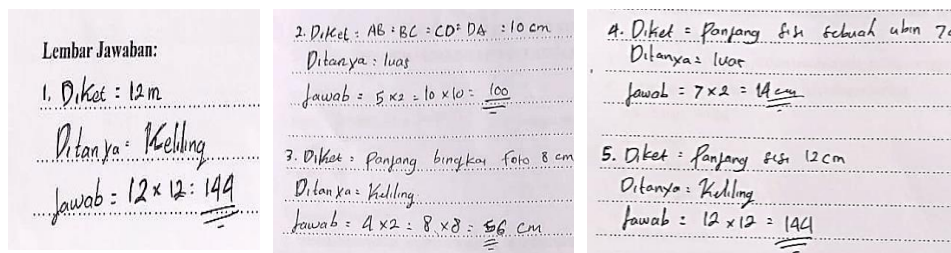 Lembar Jawaban:
1. Diket : 12 m
Ditanya = Keliling
Jawab = 12 x 12 : 144
2. Diket : AB = BC = CD = DA = 10 cm
Ditanya : luas
Jawab = 5 x 2 = 10 x 10 = 100
3. Diket : Panjang bingkai foto 8 cm
Ditanya = Keliling
Jawab = 4 x 2 = 8 x 8 = 56 cm
4. Diket = Panjang sisi sebuah ubin 7
Ditanya = luas
Jawab = 7 x 2 = 14 cm
5. Diket = Panjang sisi 12 cm
Ditanya = Keliling
Jawab = 12 x 12 = 144